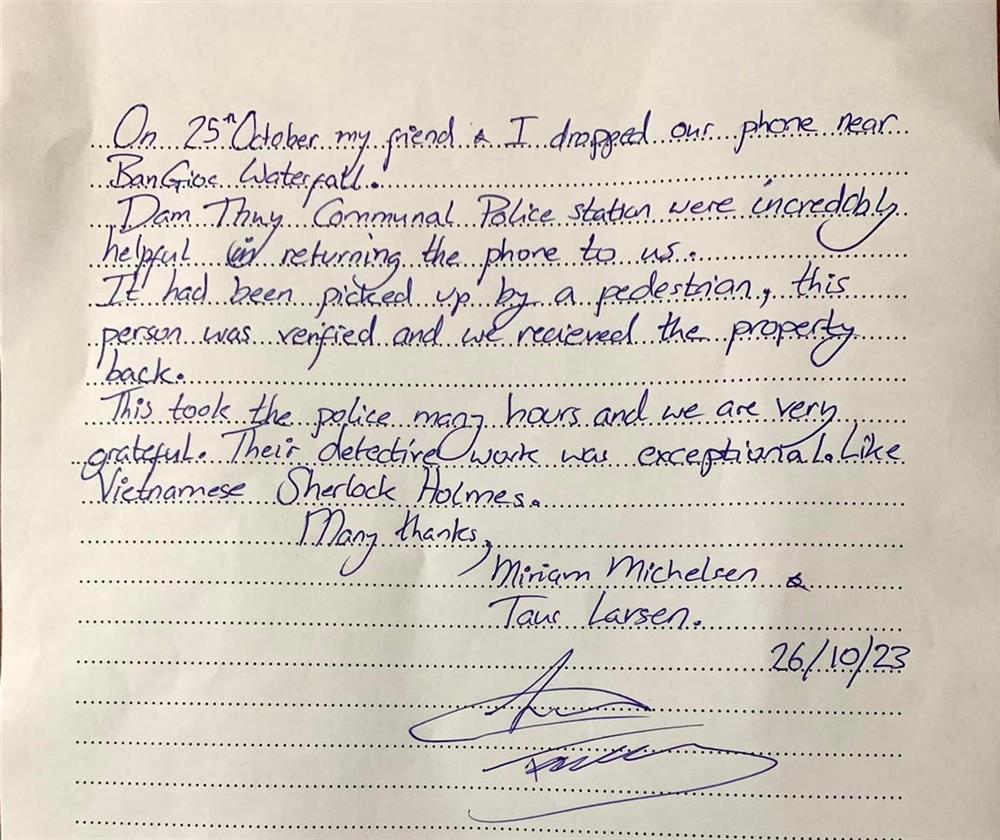 On 25th October my friend & I dropped our phone near
BanGioc Waterfall.
Dam Thuy Communal Police station were incredibly
helpful in returning the phone to us.
It had been picked up by a pedestrian, this
person was verified and we recieved the property
back.
This took the police many hours and we are very
grateful. Their detective work was exceptional. Like
Vietnamese Sherlock Holmes.
Many thanks,
Miriam Michelsen &
Taus Larsen.
26/10/23